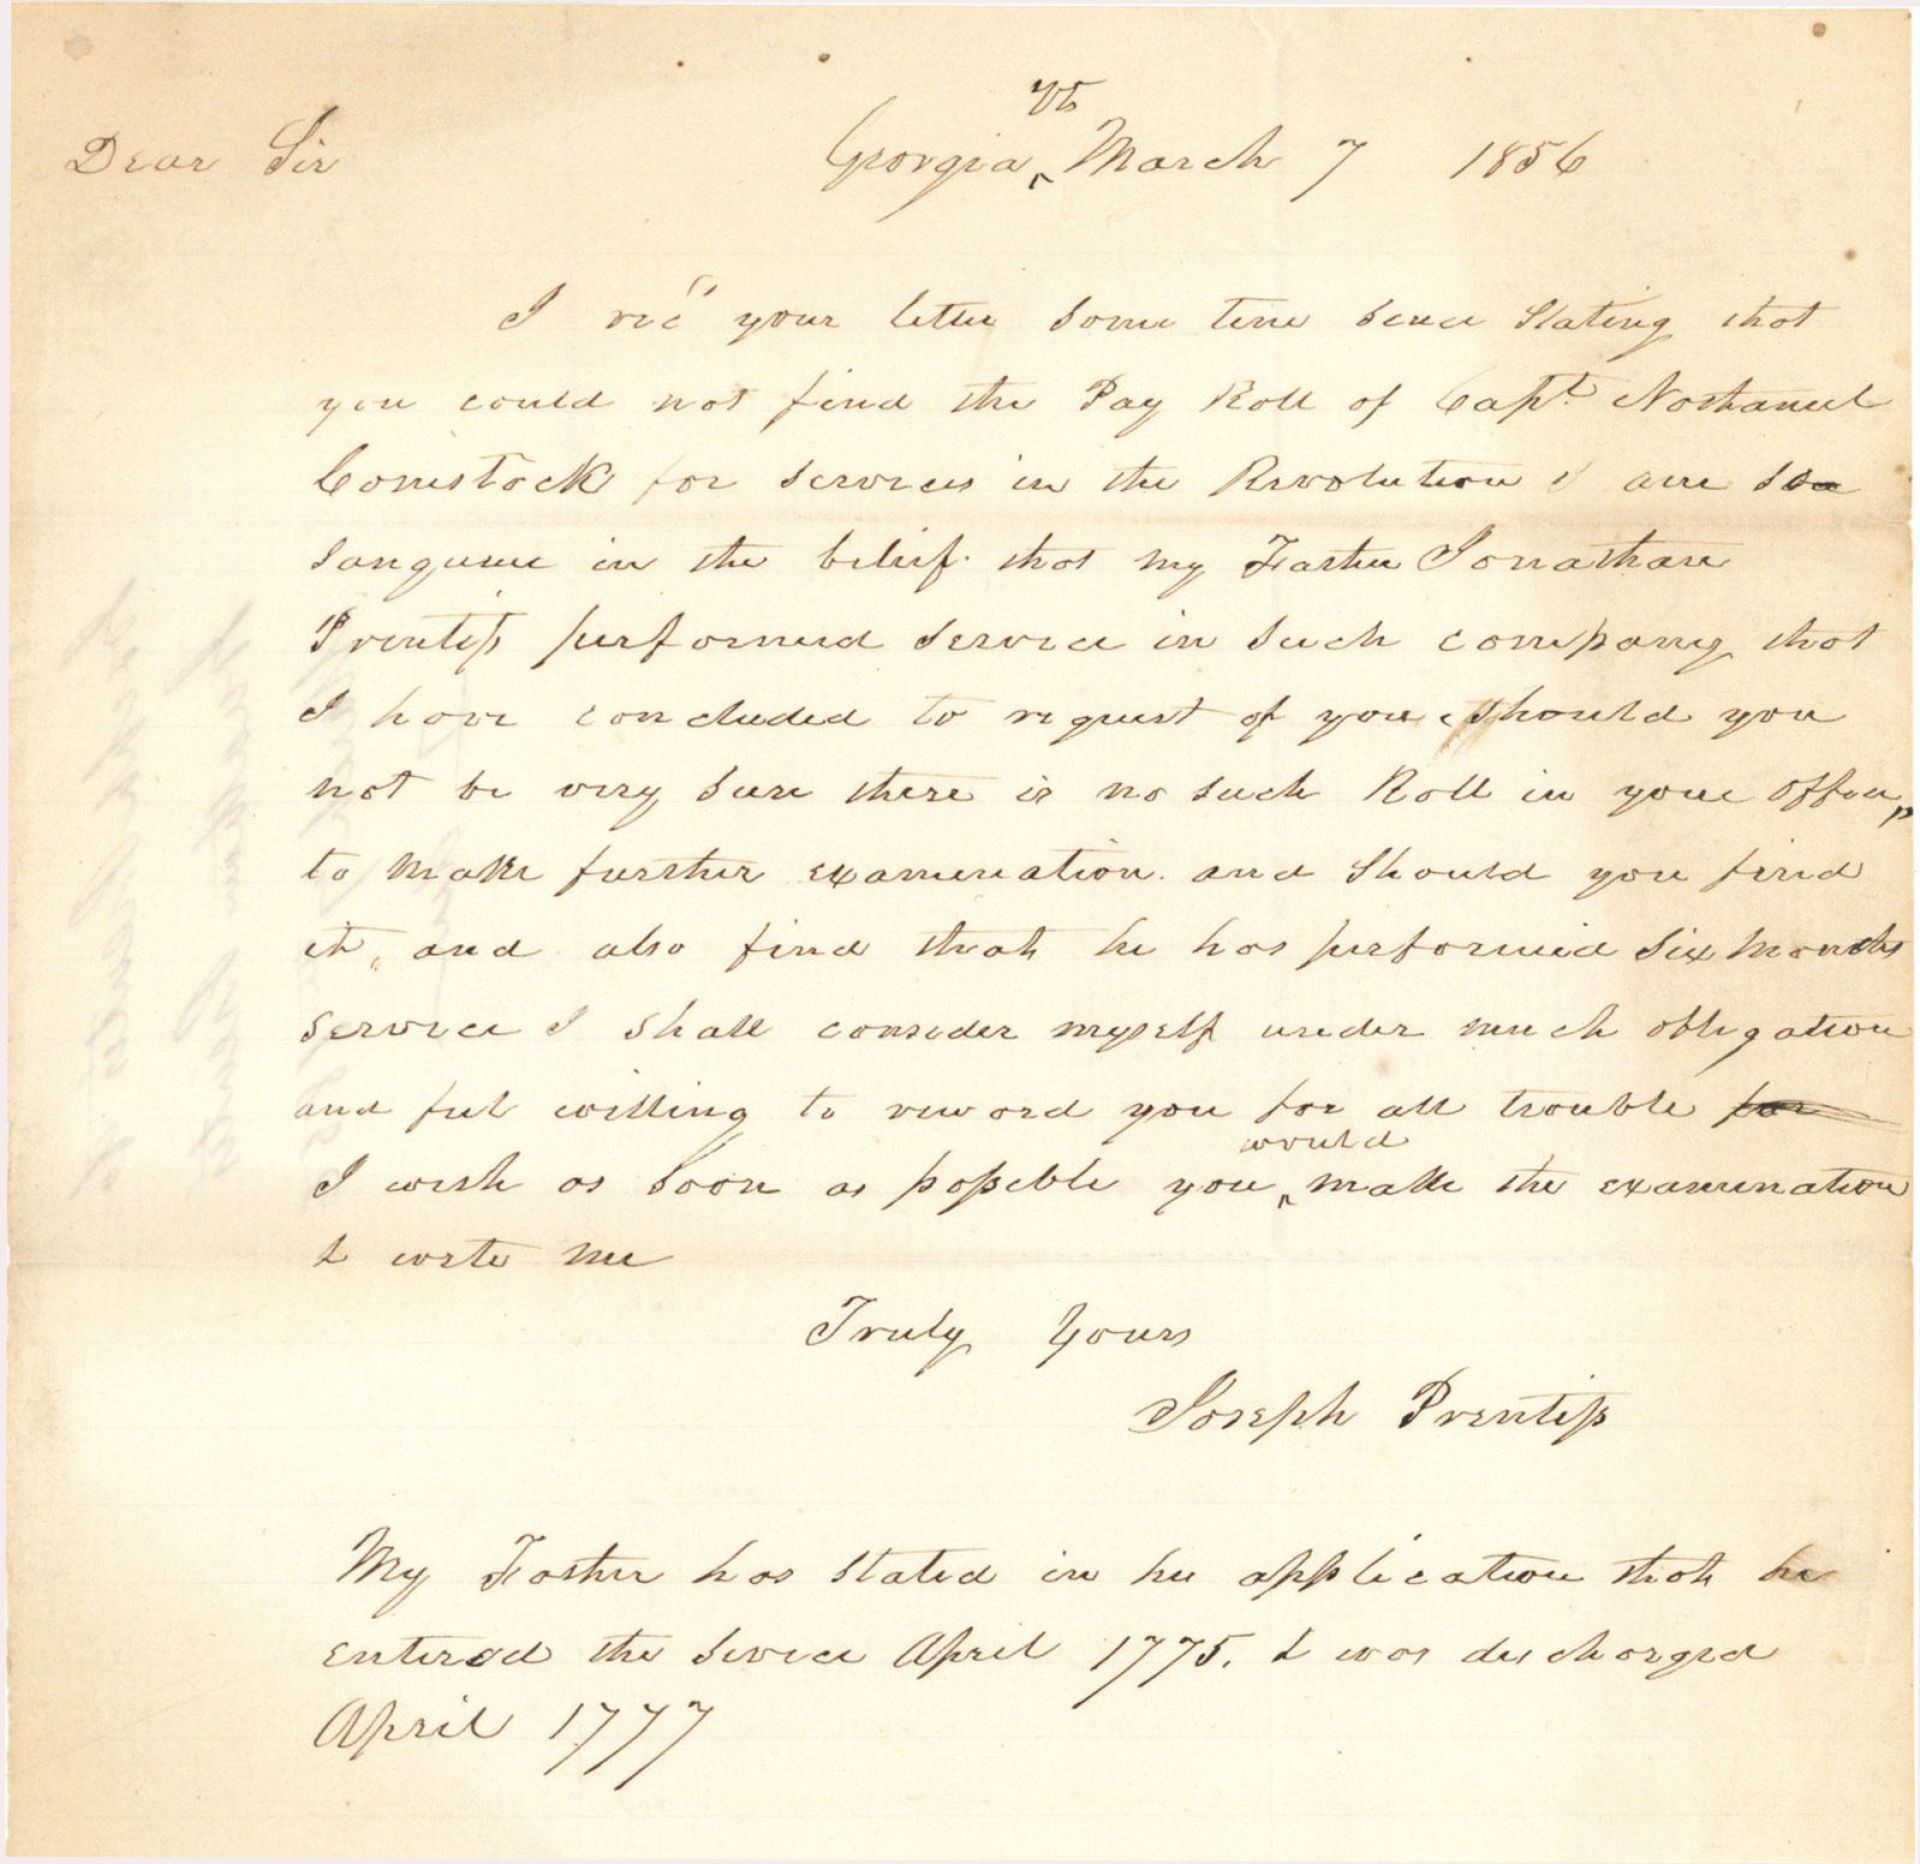 Vt
Dear Sir Georgia ‸ March 7 1856
I rec'' your letter some time since stating that
you could not find the Pay Roll of Capt Nathaniel
Comstock for services in the Revolution I am so
sanguine in the belief that my Father Jonathan
Prentiss performed service in such company that
I have concluded to request of you should you
not be very sure there is no such Roll in your office,
to make further examination. and should you find
it, and also find that he has performed six months
service I shall consider myself under much obligation
and feel willing to reword you for all trouble for
would
I wish as soon as possible you ‸ make the examination
& write me
Truly Yours
Joseph Prentiss
My Father has stated in his application that he
entered the service April 1775. & was discharged
April 1777